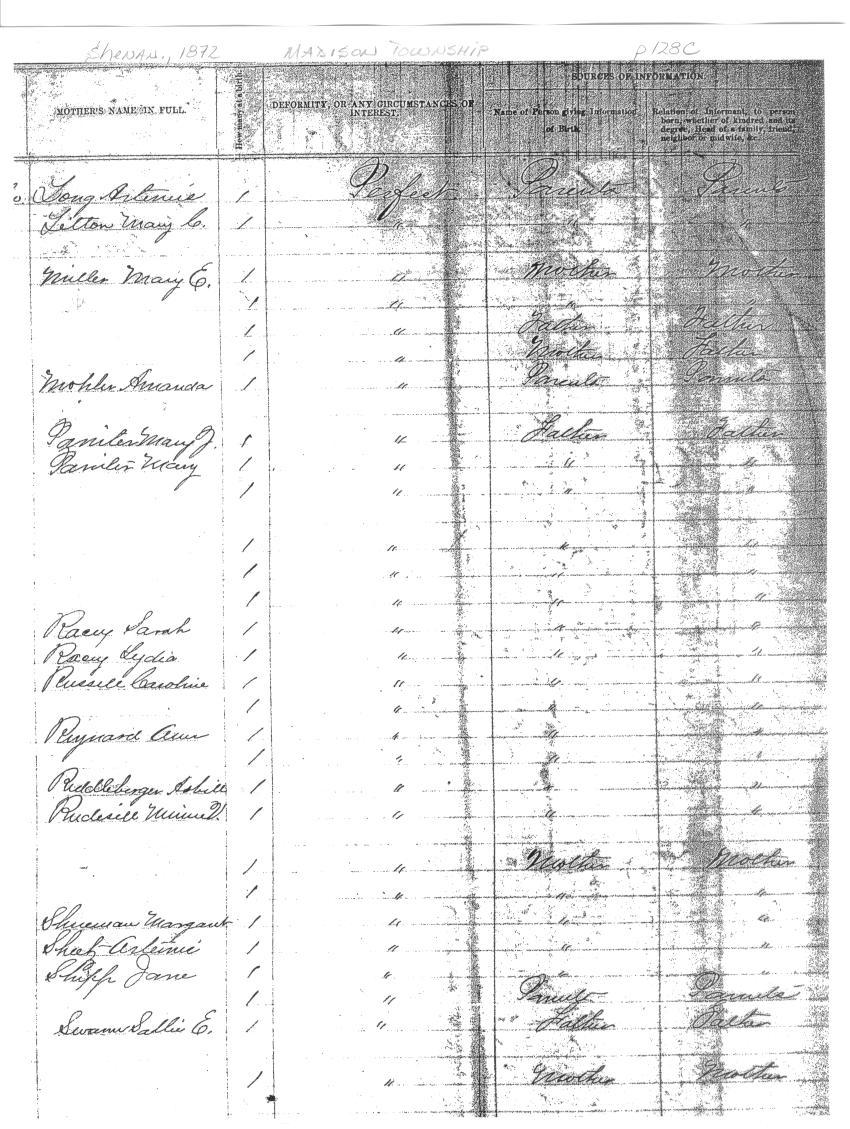 Shenan., 1872 MADISON TOWNSHIP p128C
SOURCES OF INFORMATION.
MOTHER'S NAME IN FULL. How many at a birth. DEFORMITY, OR ANY CIRCUMSTANCES OF INTEREST. Name of Person giving Information of Birth. Relation of Informant, to person born, whether of kindred and its degree, Head of a family, friend, neighbor or midwife, &c.
Long Artemie 1 Perfect Parents Parents
Litton Mary C. 1 " " "
Miller Mary E. 1 " Mother Mother
1 " " "
1 " Father Father
1 " Mother Father
Mohler Amanda 1 " Parents Parents
Mary J. 1 " Father Father
Mary 1 " " "
1 " " "
1 " " "
1 " " "
1 " " "
Racey Sarah 1 " " "
Racey Lydia 1 " " "
Russell Caroline 1 " " "
1 " " "
Rynard Ann 1 " " "
1 " " "
Riddleberger 1 " " "
Rudisill Minnie V. 1 " " "
1 " Mother Mother
1 " " "
Margaret 1 " " "
Sheetz Artemie 1 " " "
Shipp Jane 1 " " "
1 " Parents Parents
Swann Sallie E. 1 " Father Father
1 " Mother Mother